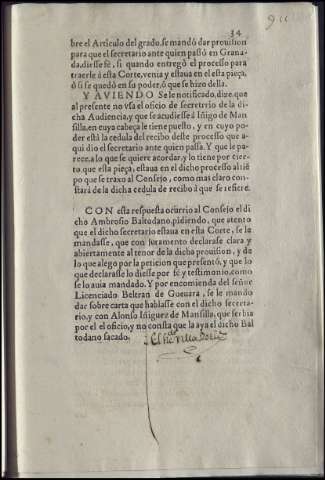 34
bre el Articulo del grado, se mandò dar prouision
para que el secretario ante quien passò en Grana-
da, diesse fè, si quando entregò el processo para
traerle â esta Corte, venia y estaua en el esta pieça,
ò si se quedò en su poder, ô que se hizo della.
Y AVIENDO Sele notificado, dize, que
al presente no vsa el oficio de secretrio de la di
cha Audiencia, y que se acudiesse â Iñigo de Man-
silla, en cuya cabeça le tiene puesto, y en cuyo po-
der està la cedula del recibo delle processo que a-
qui dio el secretario ante quien passa. Y que le pa-
rece, a lo que se quiere acordar, y lo tiene por cier-
to, que esta pieça, estaua en el dicho processo al tiē
po que se traxo al Consejo, como mas claro con-
starà de la dicha cedula de recibo â que se refiere.
CON esta respuesta ocurrio al Consejo el di
cho Ambrosio Baltodano, pidiendo, que atento
que el dicho secretario estaua en esta Corte, se le
mandasse, que con juramento declarase clara y
abiertamente al tenor de la dicha prouision, y de
lo que alego por la peticion que presentò, y que lo
que declarasse lo diesse por fè y testimonio, como
se lo auia mandado. Y por encomienda del señor
Licenciado Beltran de Gueuara, se le mando
dar sobre carta que hablasse con el dicho secreta-
rio, y con Alonso Iñiguez de Mansilla, que seruia
por el el oficio, y no consta que la aya el dicho Bal
todano sacado.